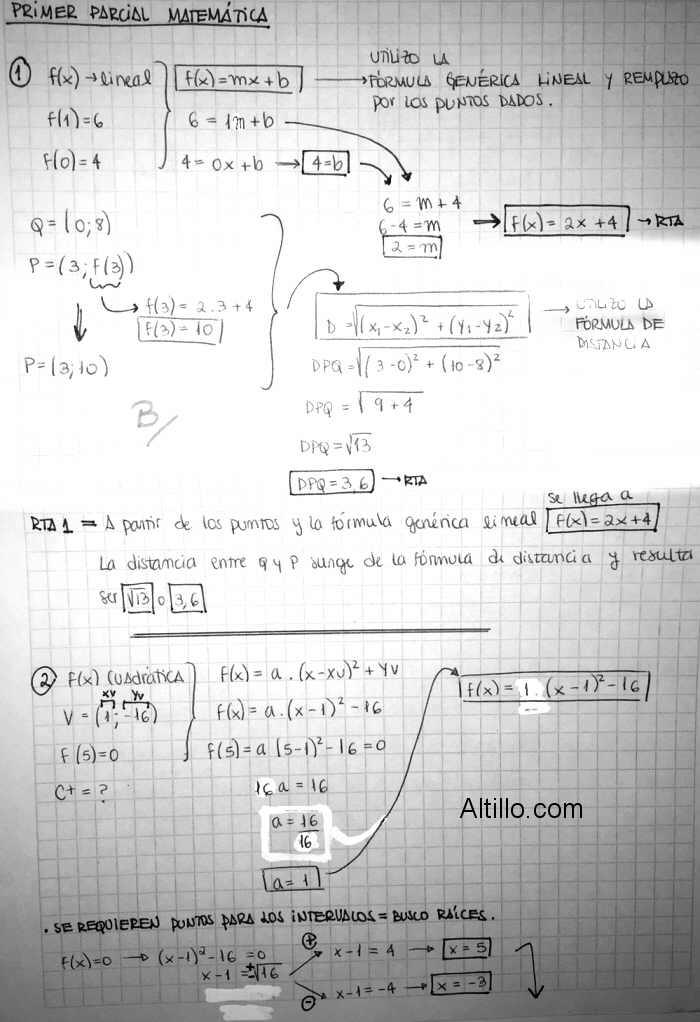 PRIMER PARCIAL MATEMÁTICA
① f(x) → lineal f(x) = mx + b → UTILIZO LA
FÓRMULA GENÉRICA LINEAL Y REMPLAZO
POR LOS PUNTOS DADOS.
f(1) = 6 6 = 1m + b
f(0) = 4 4 = 0x + b → 4 = b
6 = m + 4
6 - 4 = m → f(x) = 2x + 4 → RTA
2 = m
Q = (0; 8)
P = (3; f(3))
f(3) = 2.3 + 4
f(3) = 10
P = (3; 10)
D = √(x₁-x₂)² + (y₁-y₂)² → UTILIZO LA
FÓRMULA DE
DISTANCIA
DPQ = √(3-0)² + (10-8)²
DPQ = √9 + 4
DPQ = √13
DPQ = 3,6 → RTA
B/
RTA 1 = A partir de los puntos y la fórmula genérica lineal se llega a f(x) = 2x + 4
La distancia entre Q y P surge de la fórmula de distancia y resulta
ser √13 o 3,6
② f(x) CUADRÁTICA f(x) = a . (x - xv)² + yv
xv yv
V = (1; -16) f(x) = a . (x - 1)² - 16
f(5) = 0 f(5) = a (5-1)² - 16 = 0
C+ = ? 16 a = 16
a = 16
16
a = 1
f(x) = 1 . (x - 1)² - 16
Altillo.com
. SE REQUIEREN PUNTOS PARA LOS INTERVALOS = BUSCO RAÍCES.
f(x) = 0 → (x-1)² - 16 = 0 ⊕ x - 1 = 4 → x = 5
x - 1 = ±√16
⊖ x - 1 = -4 → x = -3